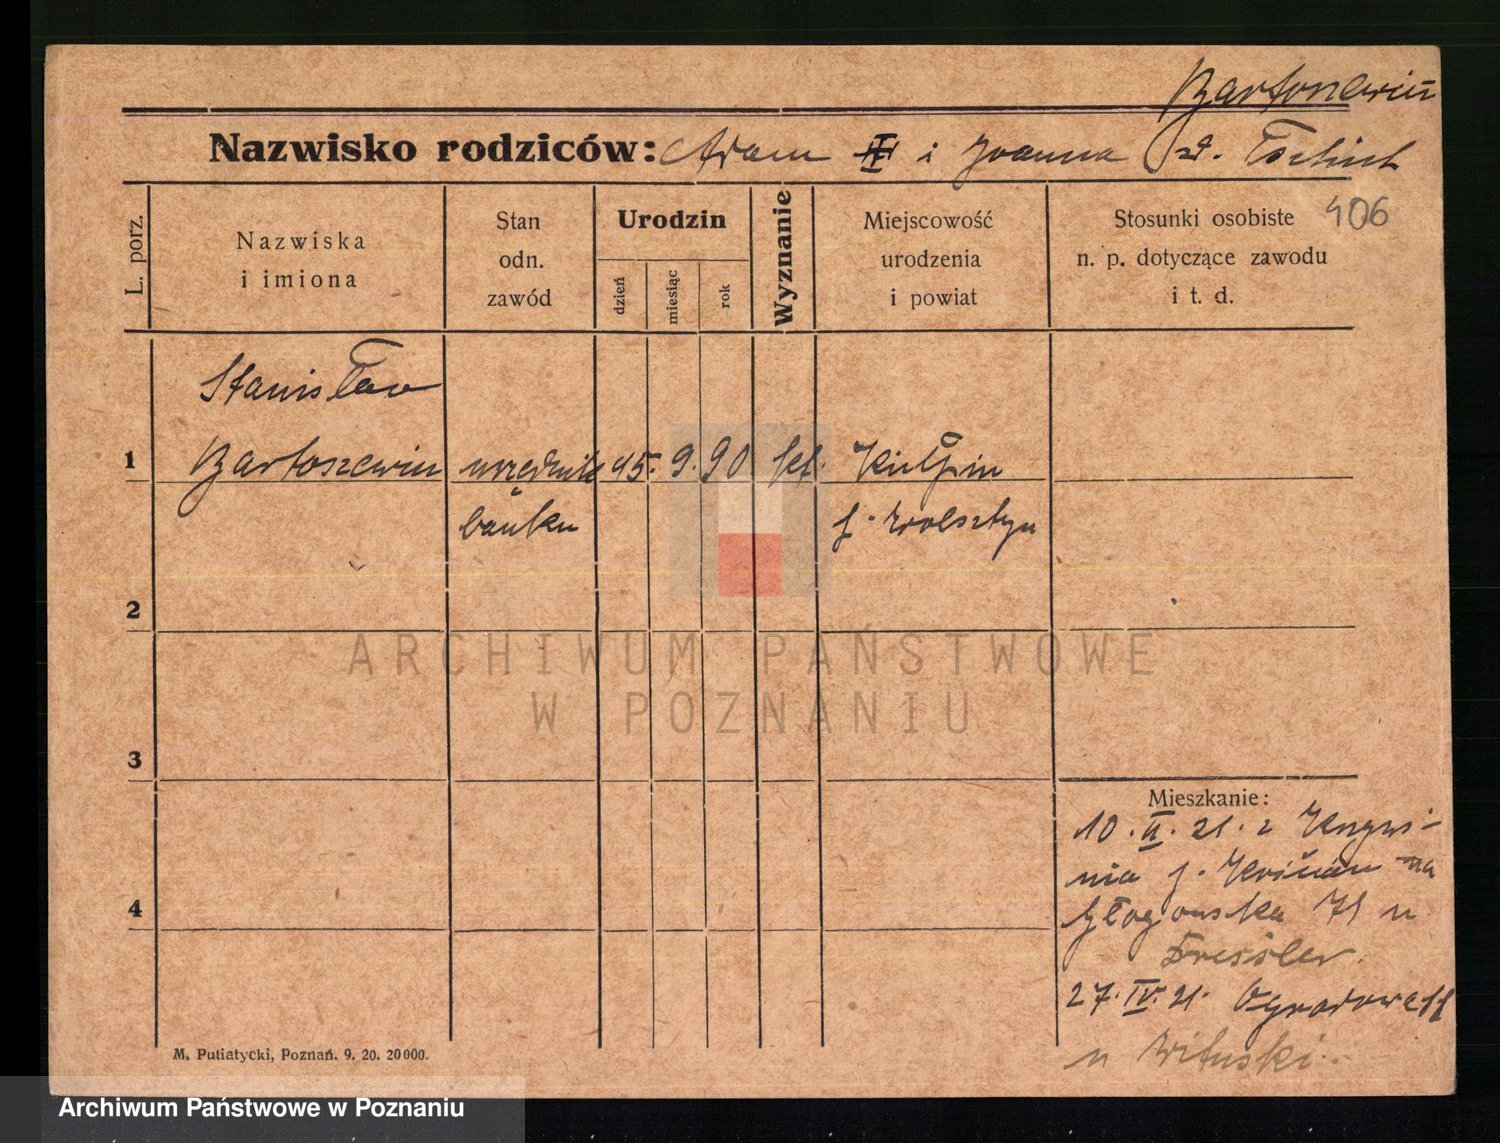 Bartoszewicz
Nazwisko rodziców: Adam i Joanna
406
L. porz.
Nazwiska i imiona
Stan odn. zawód
Urodzin
dzień
miesiąc
rok
Wyznanie
Miejscowość urodzenia i powiat
Stosunki osobiste n. p. dotyczące zawodu i t. d.
Stanisław
1 Bartoszewicz urzędnik 15. 9. 90 kat. Kiełpin
banku p. Wolsztyn
2
ARCHIWUM PAŃSTWOWE
W POZNANIU
3
Mieszkanie:
10. II. 21. z
na
4
Głogowska 71 u
Dressler.
27. IV. 21. Ogrodowa 11
u Wituski.
M. Putiatycki, Poznań. 9. 20. 20000.
Archiwum Państwowe w Poznaniu